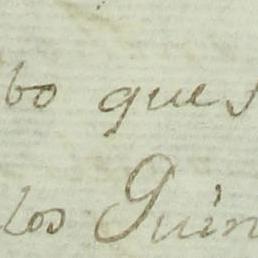 bo que s
los Quin